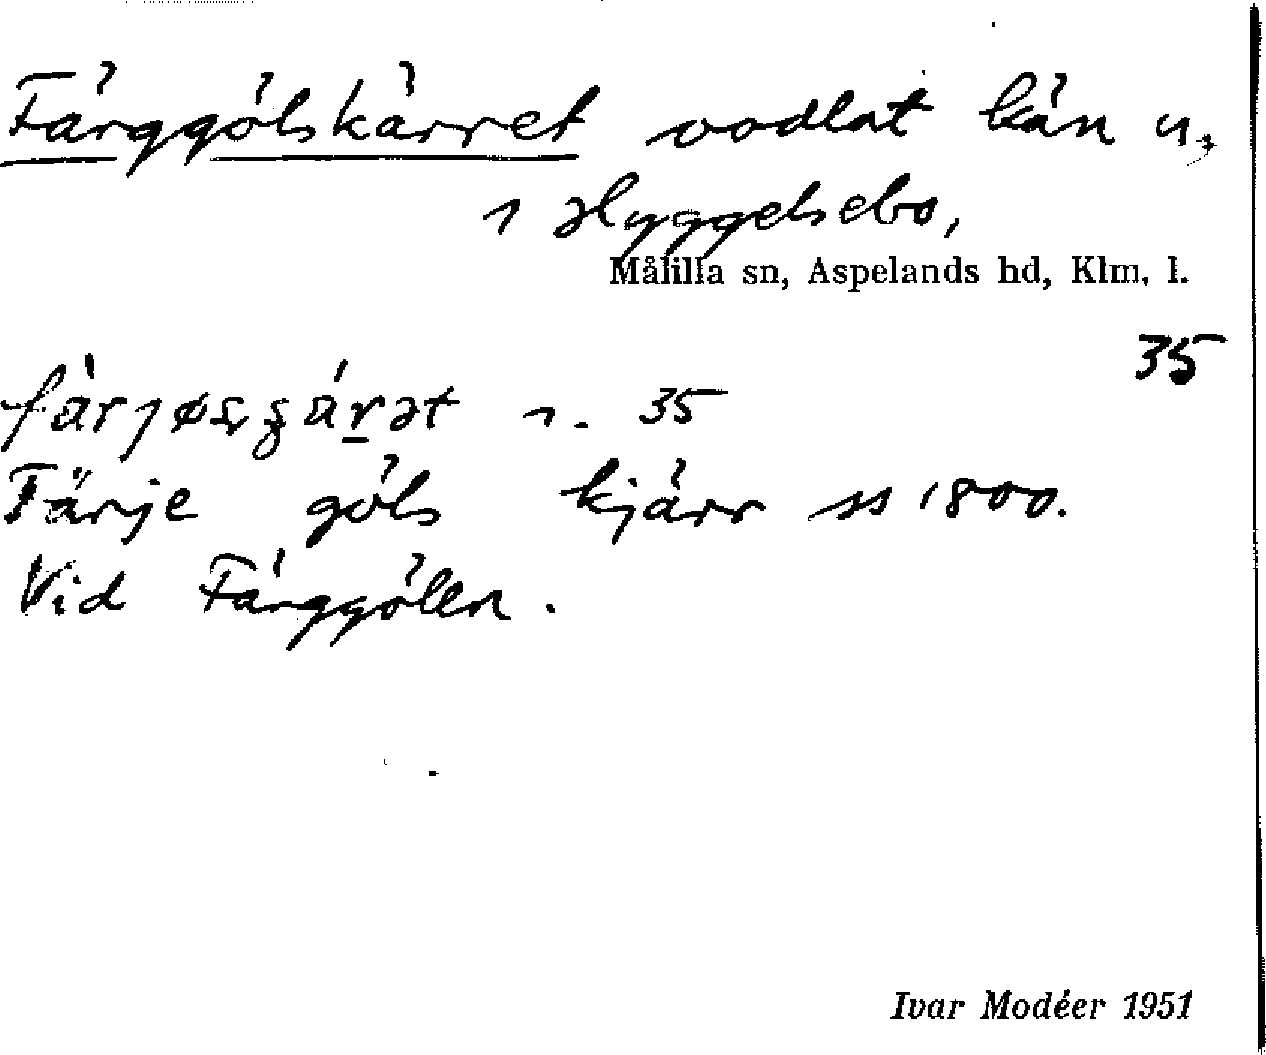 Färggölskärret oodlat kän u,
1 Hyggelsebo,
Målilla sn, Aspelands hd, Klm. l.
35
1. 35
Färje göls kjärr ss 1800.
Vid Färggölen.
Ivar Modéer 1951